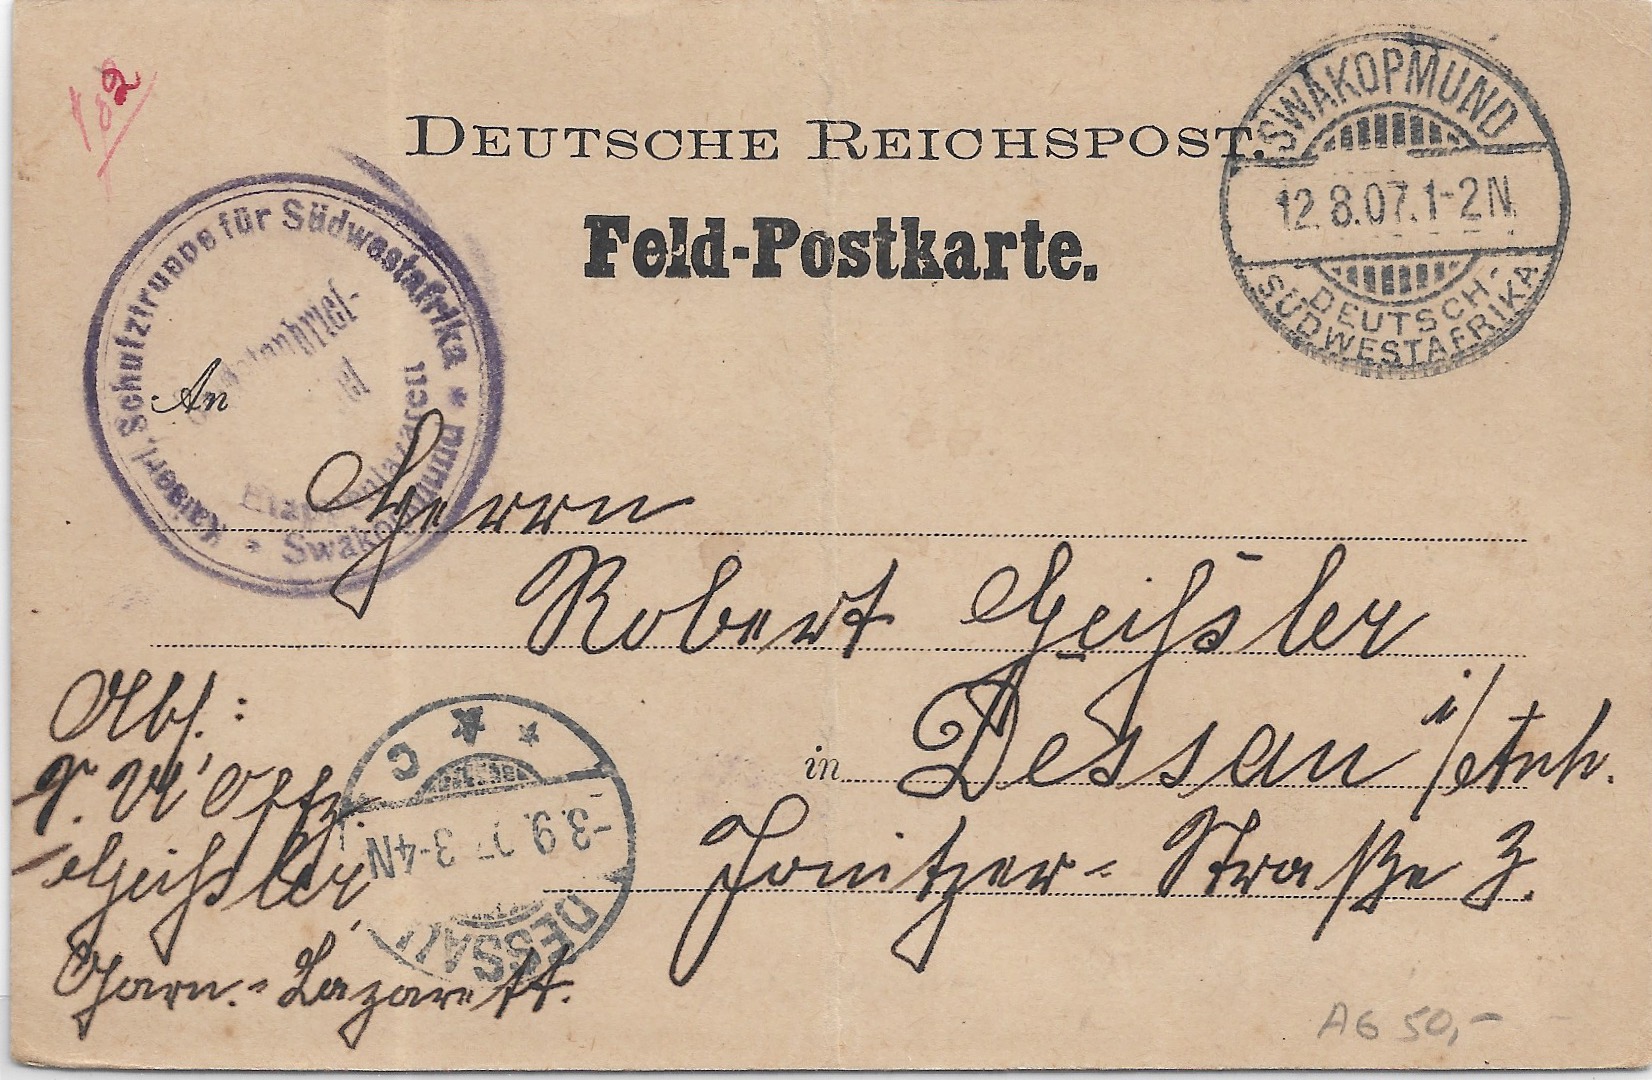 182
DEUTSCHE REICHSPOST.
Feld-Postkarte.
SWAKOPMUND
12.8.07.1-2N.
DEUTSCH-
SÜDWESTAFRIKA
Kaiserl. Schutztruppe für Südwestafrika
Swakopmund
An
Herrn
Robert Geißler
in Dessau i/Anh.
Jonitzer-Straße 3.
Abs.:
Geißler,
Garn.-Lazarett.
DESSAU
-3.9. 3-4N
C
AG 50,-